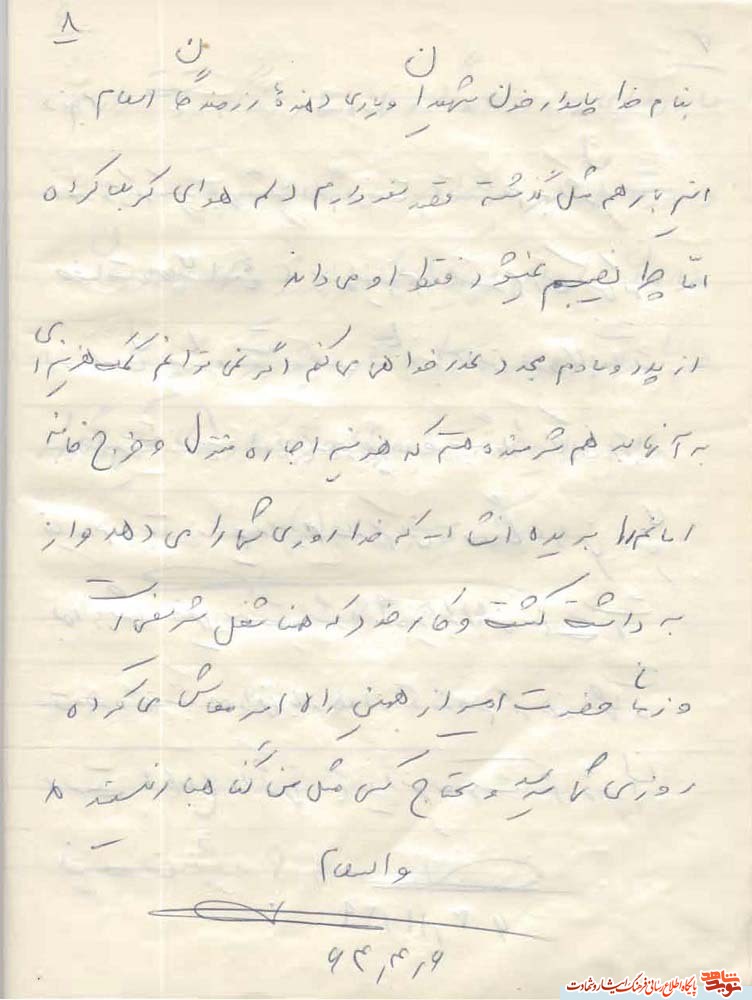 ۸
بنام خدا پاسدار خون شهیدان و یاری دهندهٔ رزمندگان اسلام
این بار هم مثل گذشته قصد سفر دارم دلم هوای کربلا کرده
امّا چرا نصیبم نمیشود فقط او می‌داند
از پدر و مادرم مجدد عذرخواهی می‌کنم اگر نمی‌توانم کمک هزینه‌ای
به آنها بدهم شرمنده هستم که هزینه اجاره منزل و خرج خانه
امانم را بریده انشاا... که خدا روزی شما را می‌دهد و از
برداشت کشت و کار خود که هنا شغل شریفی است
و زمان حضرت امیر از همین راه امر معاش می‌کرده
روزی شما برسد و محتاج کسی مثل من گناهبار نیستید
والسلام
۶۴,۴,۶
نوید شاهد
پایگاه اطلاع رسانی فرهنگ ایثار و شهادت